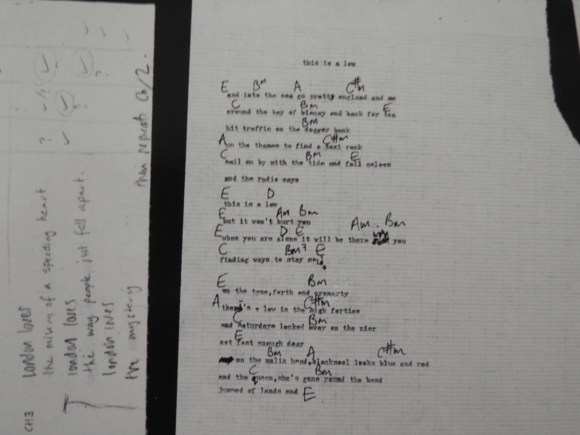 this is a low
E Bm A C#m
and into the sea go pretty england and me
C Bm E
around the bay of biscay and back for tea
Bm
hit traffic on the dogger bank
A C#m
up the thames to find a taxi rank
C Bm E
sail on by with the tide and fall asleep
and the radio says
E D
this is a low
E Am Bm
but it won't hurt you
E D E Am . Bm
when you are alone it will be there you
C Bm7 E
finding ways to stay
E Bm
on the tyne, forth and cromarty
A C#m
there's a low in the high forties
C Bm
and saturdays locked away on the pier
E
not fast enough dear
Bm A C#m
on the malin head, blackpool looks blue and red
C Bm
and the queen, she's gone round the bend
jumped of lands end E.
CH3
London loves
the of a speeding heart
London loves
the way people just fall apart.
London loves
the mystery
then repeats Ch/2.